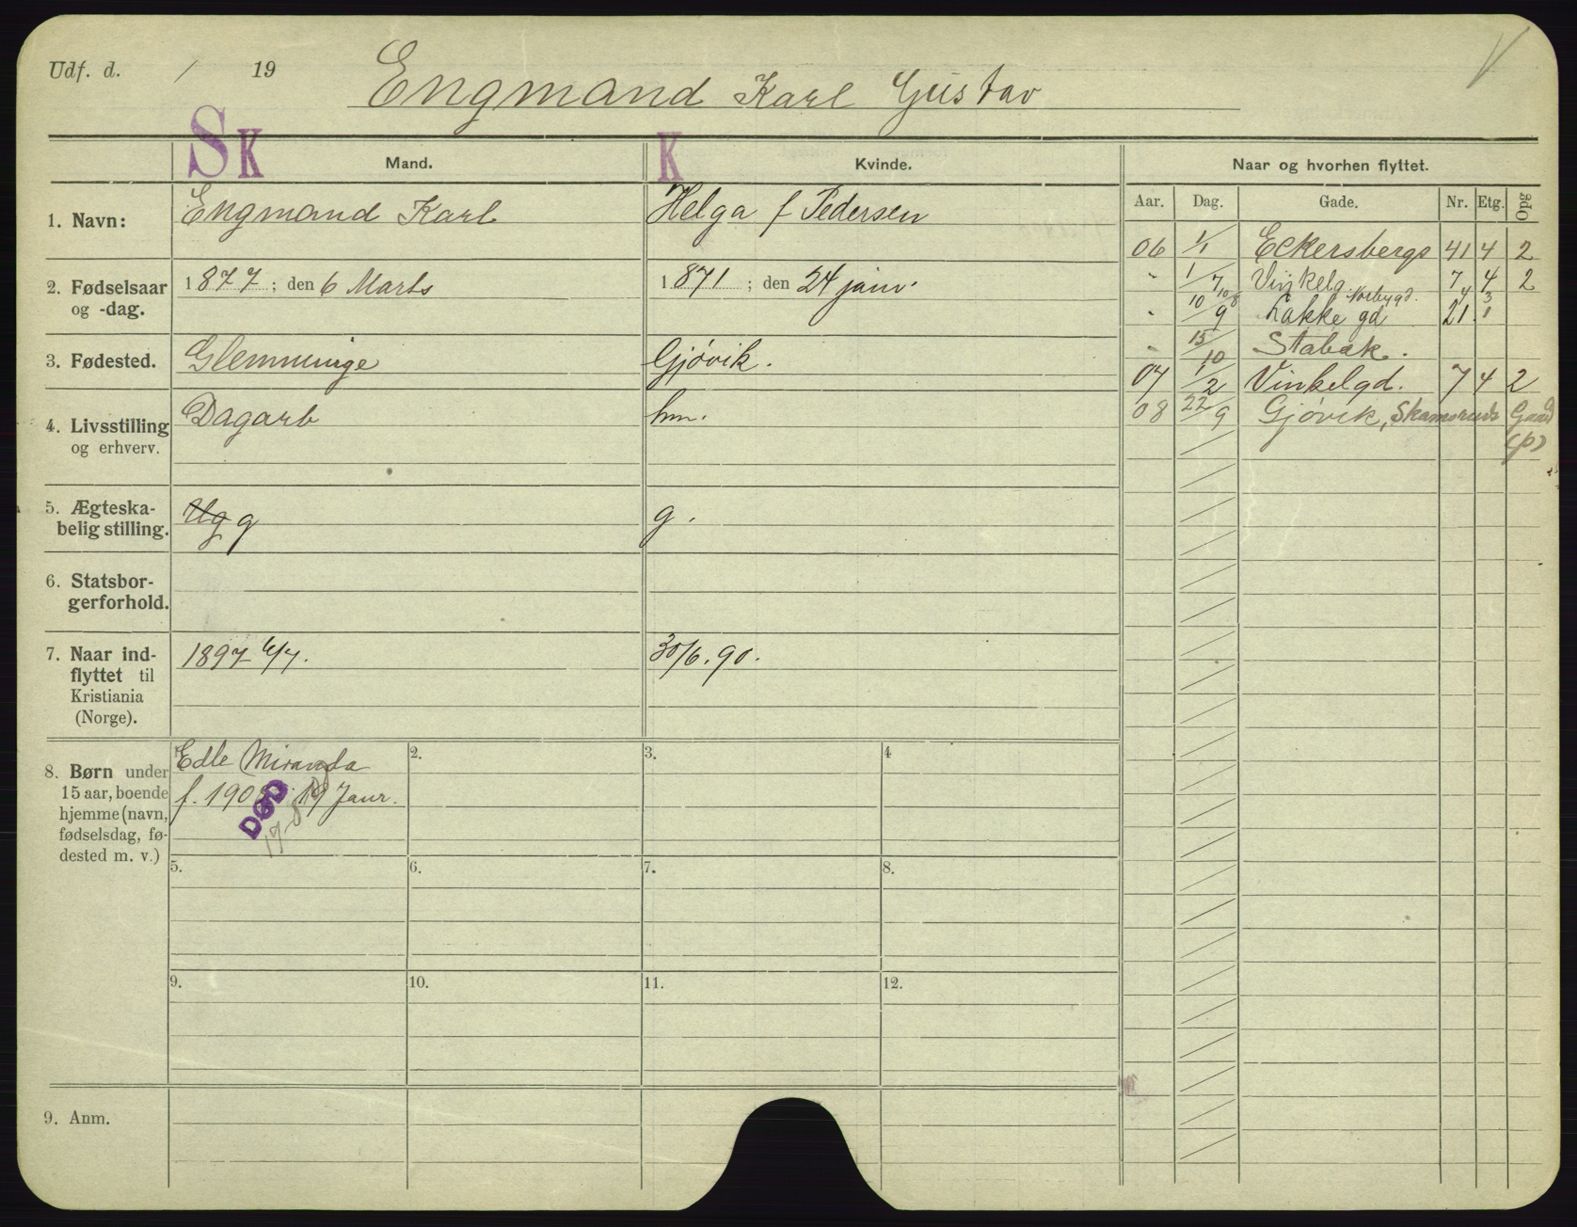 Udf. d. / 19
Engmand Karl Gustav
SK Mand.
K Kvinde.
Naar og hvorhen flyttet.
Aar. Dag. Gade. Nr. Etg. Opg
1. Navn: Engmand Karl
Helga f Pedersen
2. Fødselsaar og -dag. 1877 ; den 6 Marts
1871 ; den 24 janv.
3. Fødested. Glemminge
Gjøvik.
4. Livsstilling og erhverv. Dagarb
hm.
5. Ægteska-
belig stilling. Ug g
g.
6. Statsbor-
gerforhold.
7. Naar ind-
flyttet til
Kristiania
(Norge).
1897 6/7.
30/6.90.
8. Børn under
15 aar, boende
hjemme (navn,
fødselsdag, fø-
dested m. v.)
Edle Miranda
f. 190 19 Janr.
DØD
2.
3.
4
5.
6.
7.
8.
9.
10.
11.
12.
9. Anm.
06 1/1 Eckersbergs 41 4 2
" 1/7 Vinkelg. 7 4 2
10/8 4 3
" 10/9 Lakkegd 21 1
" 15/10 Stabæk.
07 1/2 Vinkelgd. 7 4 2
08 22/9 Gjøvik, Skamsruds Gaad
(p)